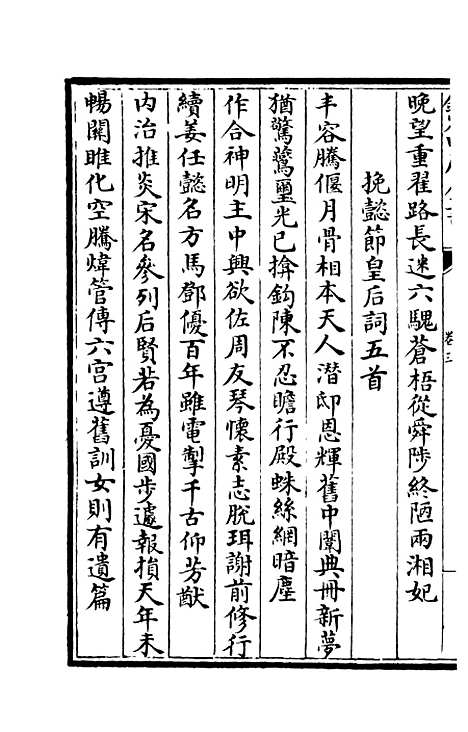 晩望重翟路長迷六騩蒼梧從舜陟終陋兩湘妃
挽懿節皇后詞五首
丰容騰偃月骨相本天人潛邸恩輝舊中闈典冊新夢
猶驚鷟璽光已揜鈎陳不忍瞻行殿蛛絲網暗塵
作合神明主中興欲佐周友琴懷素志脫珥謝前修行
續姜任懿名方馬鄧優百年雖電掣千古仰芳猷
内治推炎宋名參列后賢若為憂國步遽報損天年未
暢關雎化空騰煒管傳六宫遵舊訓女則有遺篇
卷三